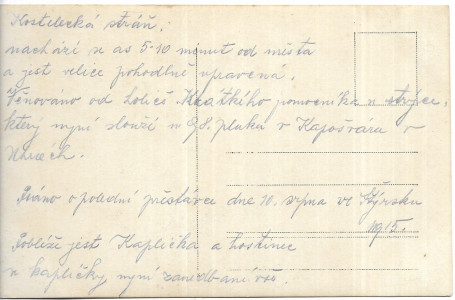 Kostelecká stráň,
nachází se as 5-10 minut od města
a jest velice pohodlně upravená.
Věnováno od holič. pomocníka u strýce,
který nyní slouží u 28. pluku v Kapošváru v
Uhrách.
Psáno o polední přestávce dne 10. srpna ve Štýrsku
1915.
Poblíže jest Kaplička a hostinec
u kapličky, nyní zanedbaní